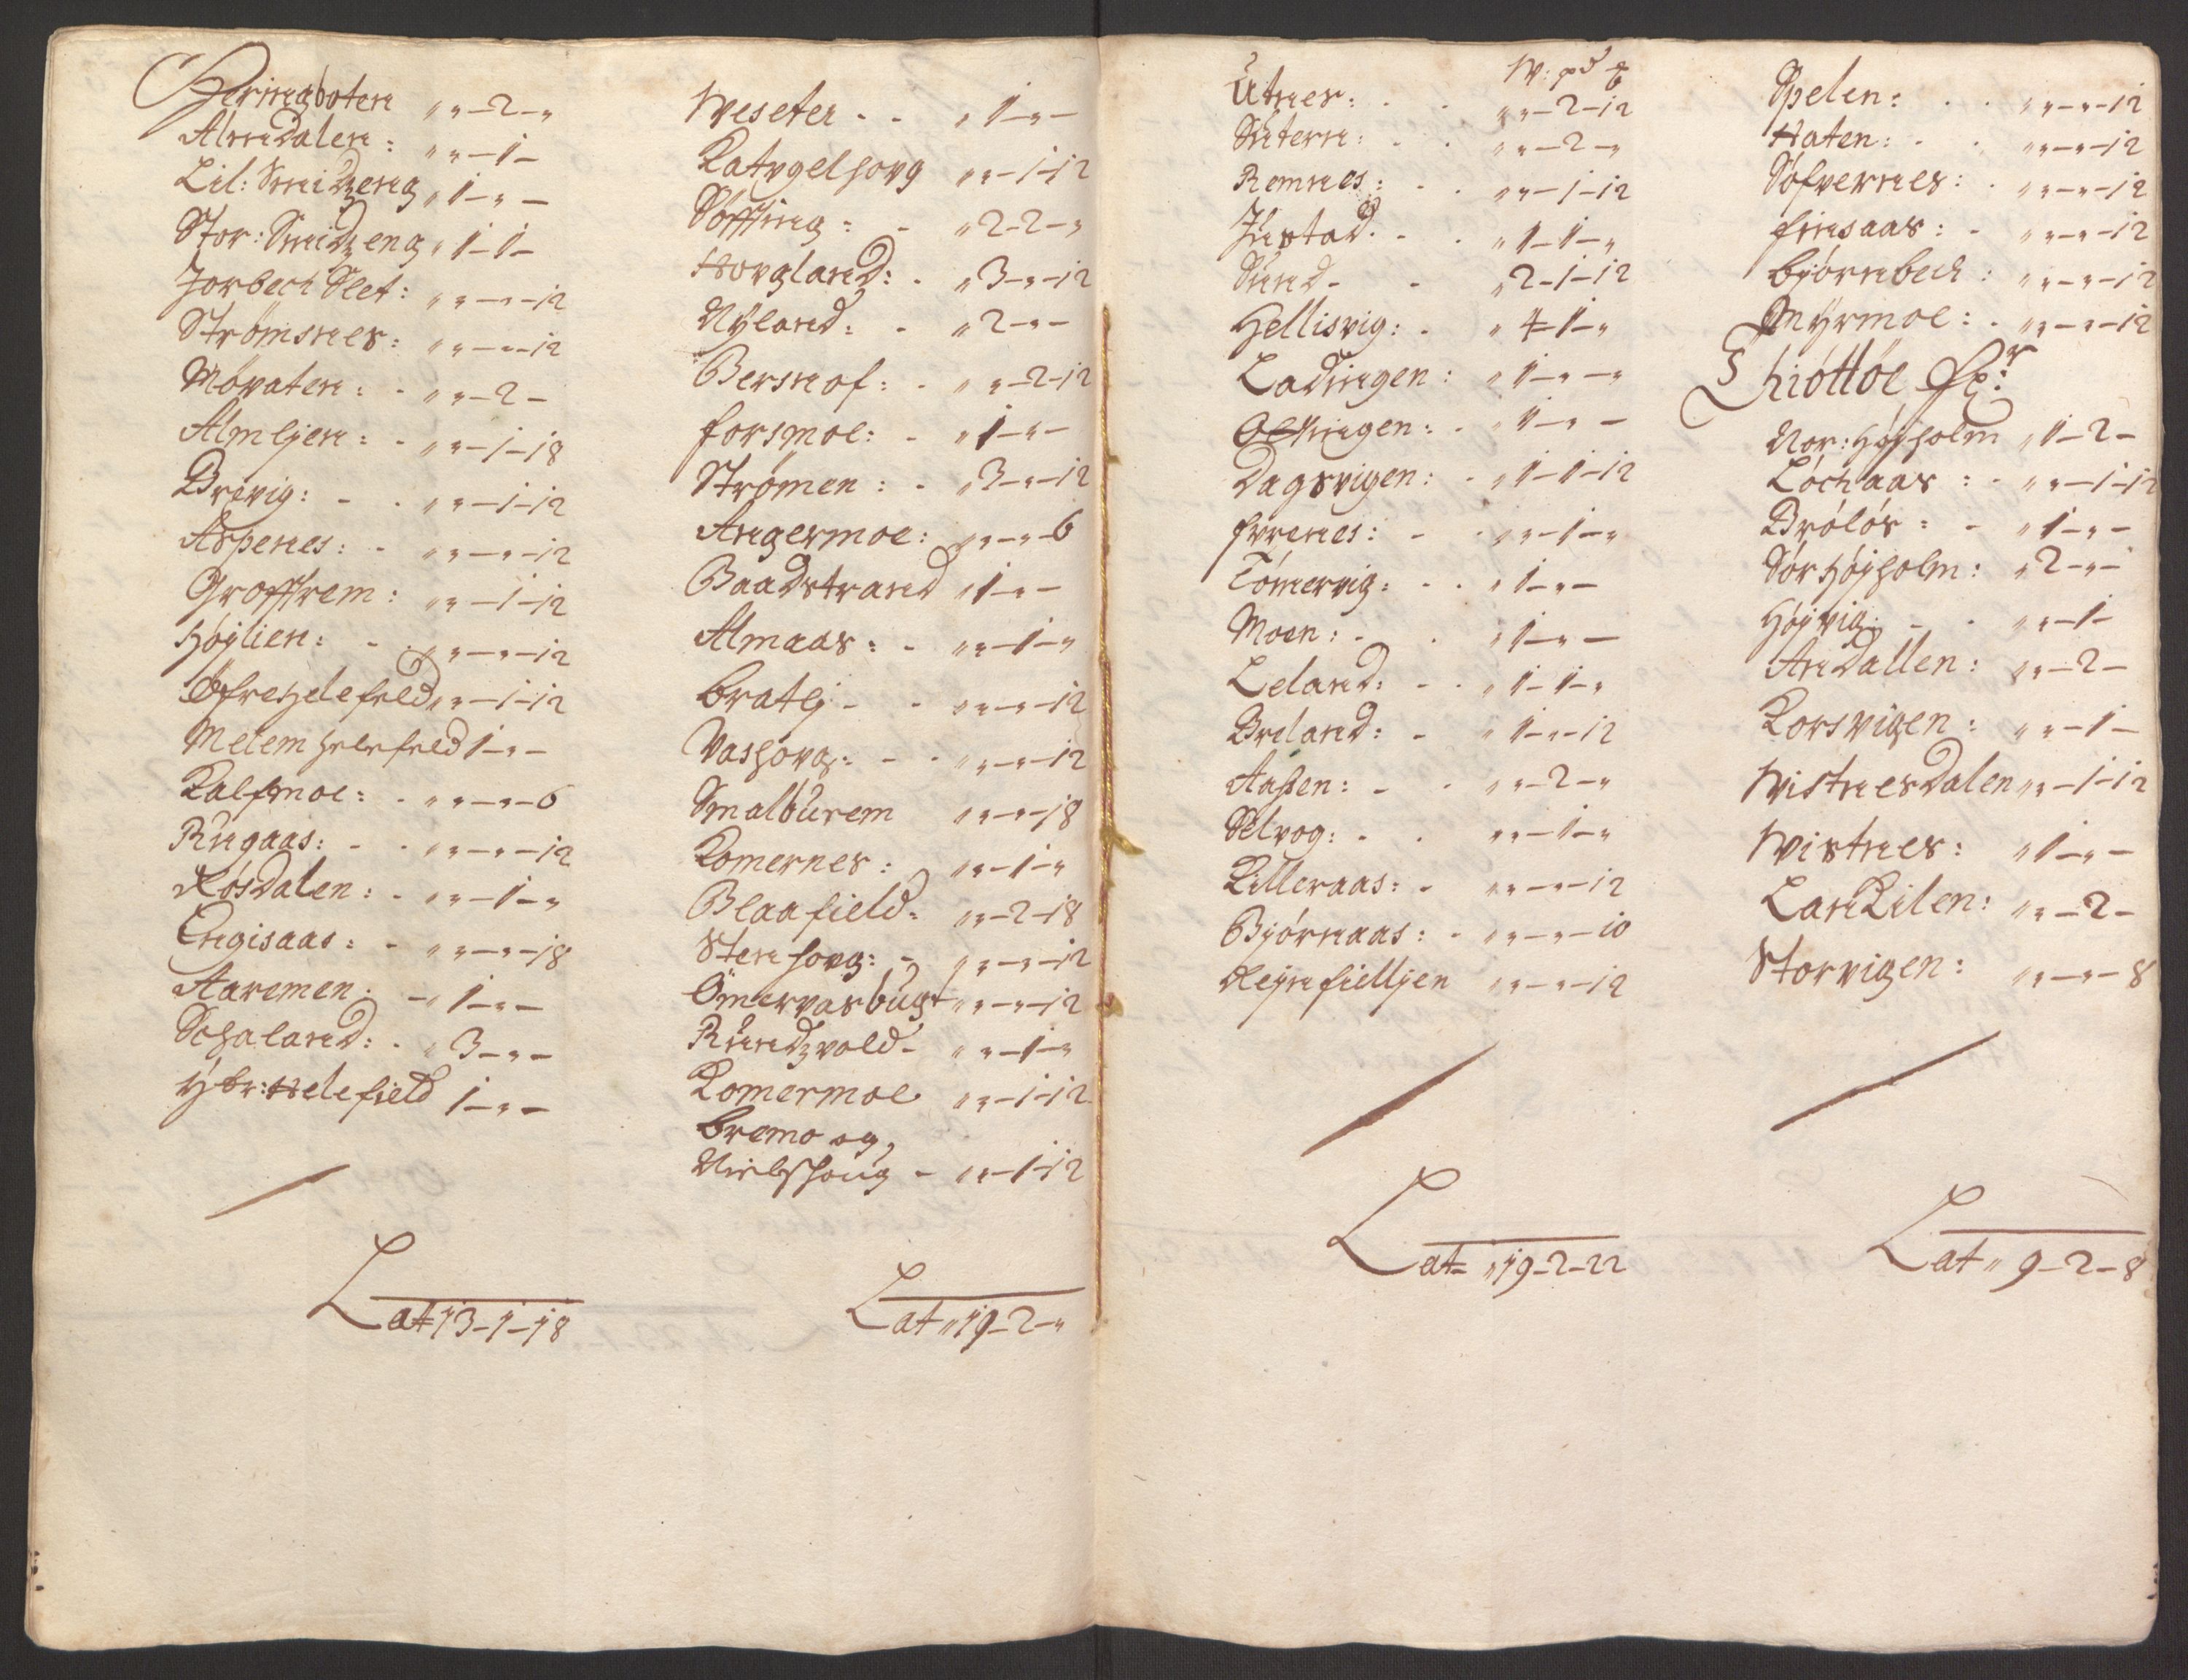 Heringboten „ „ – 2 – „
Almdalen : „ „ – 1 –
Lil: Smidzeng „ 1 – „ –
Stor: Smidzeng „ 1 – 1 –
Jorbech Slet : „ „ – „ – 12
Strømsnes : „ „ – „ – 12
Møvaten : - „ „ – 2 –
Almljen : - „ „ – 1 – 18
Brevig : - - „ „ – 1 – 12
Aspenes : - „ „ – „ – 12
Groffrem : „ „ – 1 – 12
Højlien : - „ „ – „ – 12
Øfre Helefield „ „ – 1 – 12
Melem Helefield 1 – „ –
Kalfmoe : - „ „ – „ – 6
Rúngaas : - - „ „ – „ – 12
Røsdalen : - „ „ – 1 – „
Engisaas : - „ „ – „ – 18
Aaremen : - „ 1 – „ –
Sohaland : - „ 3 – „ –
Ytr: Helefield 1 – „ –
Lat= 13 – 1 – 18
Weseter - - „ 1 – „ –
Katvgelhovg „ „ – 1 – 12
Søffting : - „ 2 – 2 – „
Hovgland : - „ 3 – „ – 12
Nÿland : - „ 2 – „ –
Bersnof : - „ „ – 2 – 12
forsmoe : - „ 1 – „ –
Strømen : - „ 3 – „ – 12
Angermoe : „ „ – „ – 6
Baadstrand „ 1 – „ –
Almaas : - „ „ – 1 – „
bratlj - - „ „ – „ – 12
Vashovg : - - „ „ – „ – 12
Smalbúrem „ „ – „ – 18
Komernes : „ „ – 1 – „
Blaafield : „ „ – 2 – 18
Stenhovg : - „ „ – „ – 12
Ömervasbúgt „ „ – „ – 12
Rúndzvold - „ „ – 1 – „
Komermoe „ „ – 1 – 12
bremo og,
Nielshoug - „ „ – 1 – 12
Lat „ 19 – 2 – „
W: pd ℔
Utnes : - - „ „ – 2 – 12
Sútern : - - „ „ – 2 – „
Remnes : - - „ „ – 1 – 12
Jústad - - - „ 1 – 1 – „
Súnd - - „ 2 – 1 – 12
Hellisvig : - „ 4 – 1 – „
Ladingen : „ 1 – „ – „
Olkingen : - „ 1 – „ –
Dagsvigen : - „ 1 – 1 – 12
fvrenes : - - „ „ – 1 – „
Tømervig : - - „ 1 – „ –
Moen : - - „ 1 – „ –
Leland : - - „ 1 – 1 – „
Breland : - „ 1 – „ – 12
Aassen : - - „ „ – 2 – „
Selvog : - - „ „ – 1 – „
Killeraas : - „ „ – „ – 12
Bjørnaas : - „ „ – „ – 10
Rejnfielljen „ „ – „ – 12
Lat= „ 19 – 2 – 22
Spelen : - - „ „ – „ – 12
Haten : - - „ „ – „ – 12
Søfvernes : - „ „ – „ – 12
finsaas : - „ „ – „ – 12
bjørnbech : „ „ – „ – 12
Mÿrmoe : - „ „ – „ – 12
Thiøttøe fr:
Nor: Højholm „ 1 – 2 –
Løchaas : - „ „ – 1 – 12
Brøløs : - „ 1 – „ –
Sør Højholm : „ 2 – „ –
Højvig : - - „ „ – 1 –
Andallen : „ „ – 2 –
Korsvigen : „ „ – 1 –
Wistnesdalen „ „ – 1 – 12
Wistnes : „ 1 – „ –
LanKilen : „ „ – 2 –
Storvigen : „ „ – „ – 8
Lat „ 9 – 2 – 8